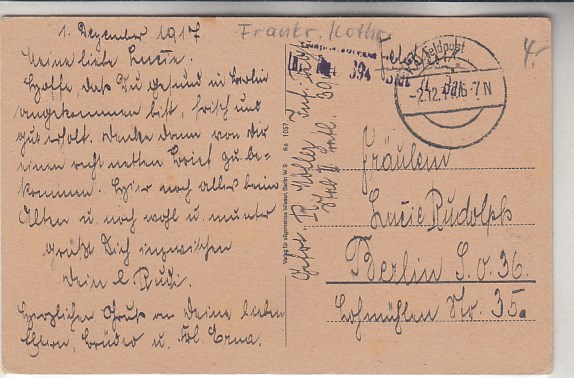 1. Dezember 1917
Meine liebe Lucie.
Hoffe, daß Du gesund in Berlin
angekommen bist, frisch und
gut erholt. Denke dann von dir
einen recht netten Brief zu be-
kommen. Hier noch alles beim
Alten u. noch wohl u. munter
grüßt Dich inzwischen
Dein l. Rudi.
Herzlichen Gruß an Deine lieben
Eltern, Brüder u. Frl. Erna.
Frankr.
Feldpost
2.12.17. 6-7 N
394
4.-
Verlag für allgemeines Wissen, Berlin W. 9. No 1057
Gefr. R.
Inf. Reg.
Fräulein
Lucie Rudolph
Berlin S.O. 36.
Lohmühlen Str. 35a